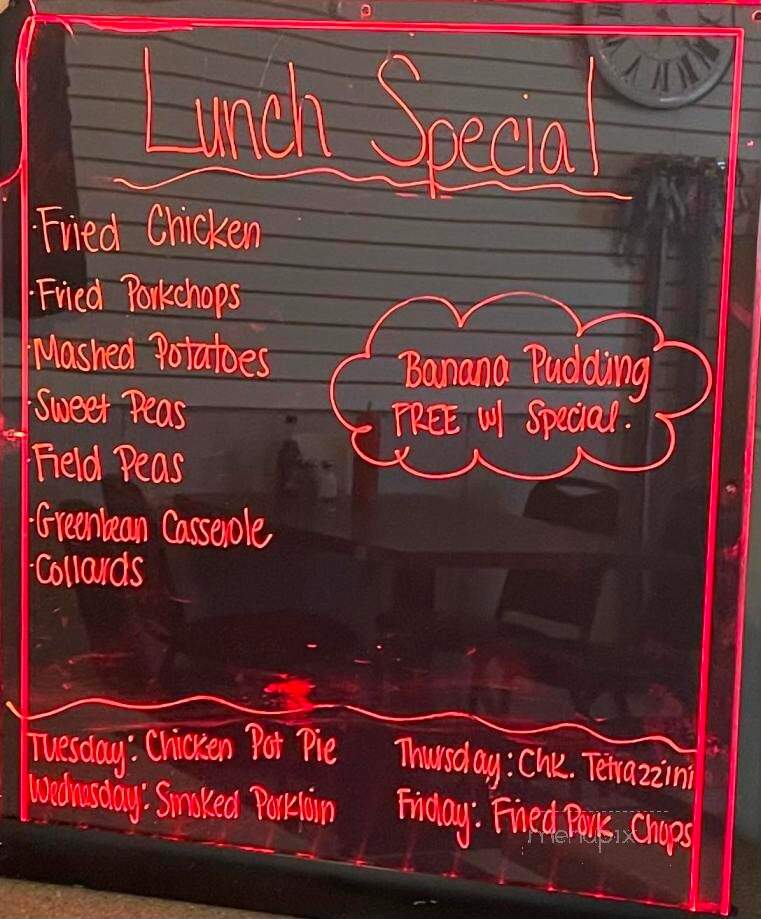 Lunch Special
·Fried Chicken
·Fried Porkchops
·Mashed Potatoes
·Sweet Peas
·Field Peas
·Greenbean Casserole
·Collards
Banana Pudding
FREE w/ Special.
Tuesday: Chicken Pot Pie
Wednesday: Smoked Porkloin
Thursday: Chk. Tetrazzini
Friday: Fried Pork Chops
menupix